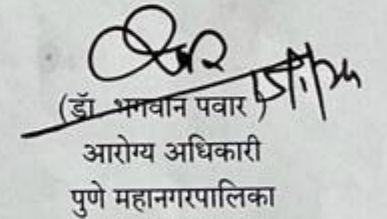 (डॉ. भगवान पवार)
आरोग्य अधिकारी
पुणे महानगरपालिका